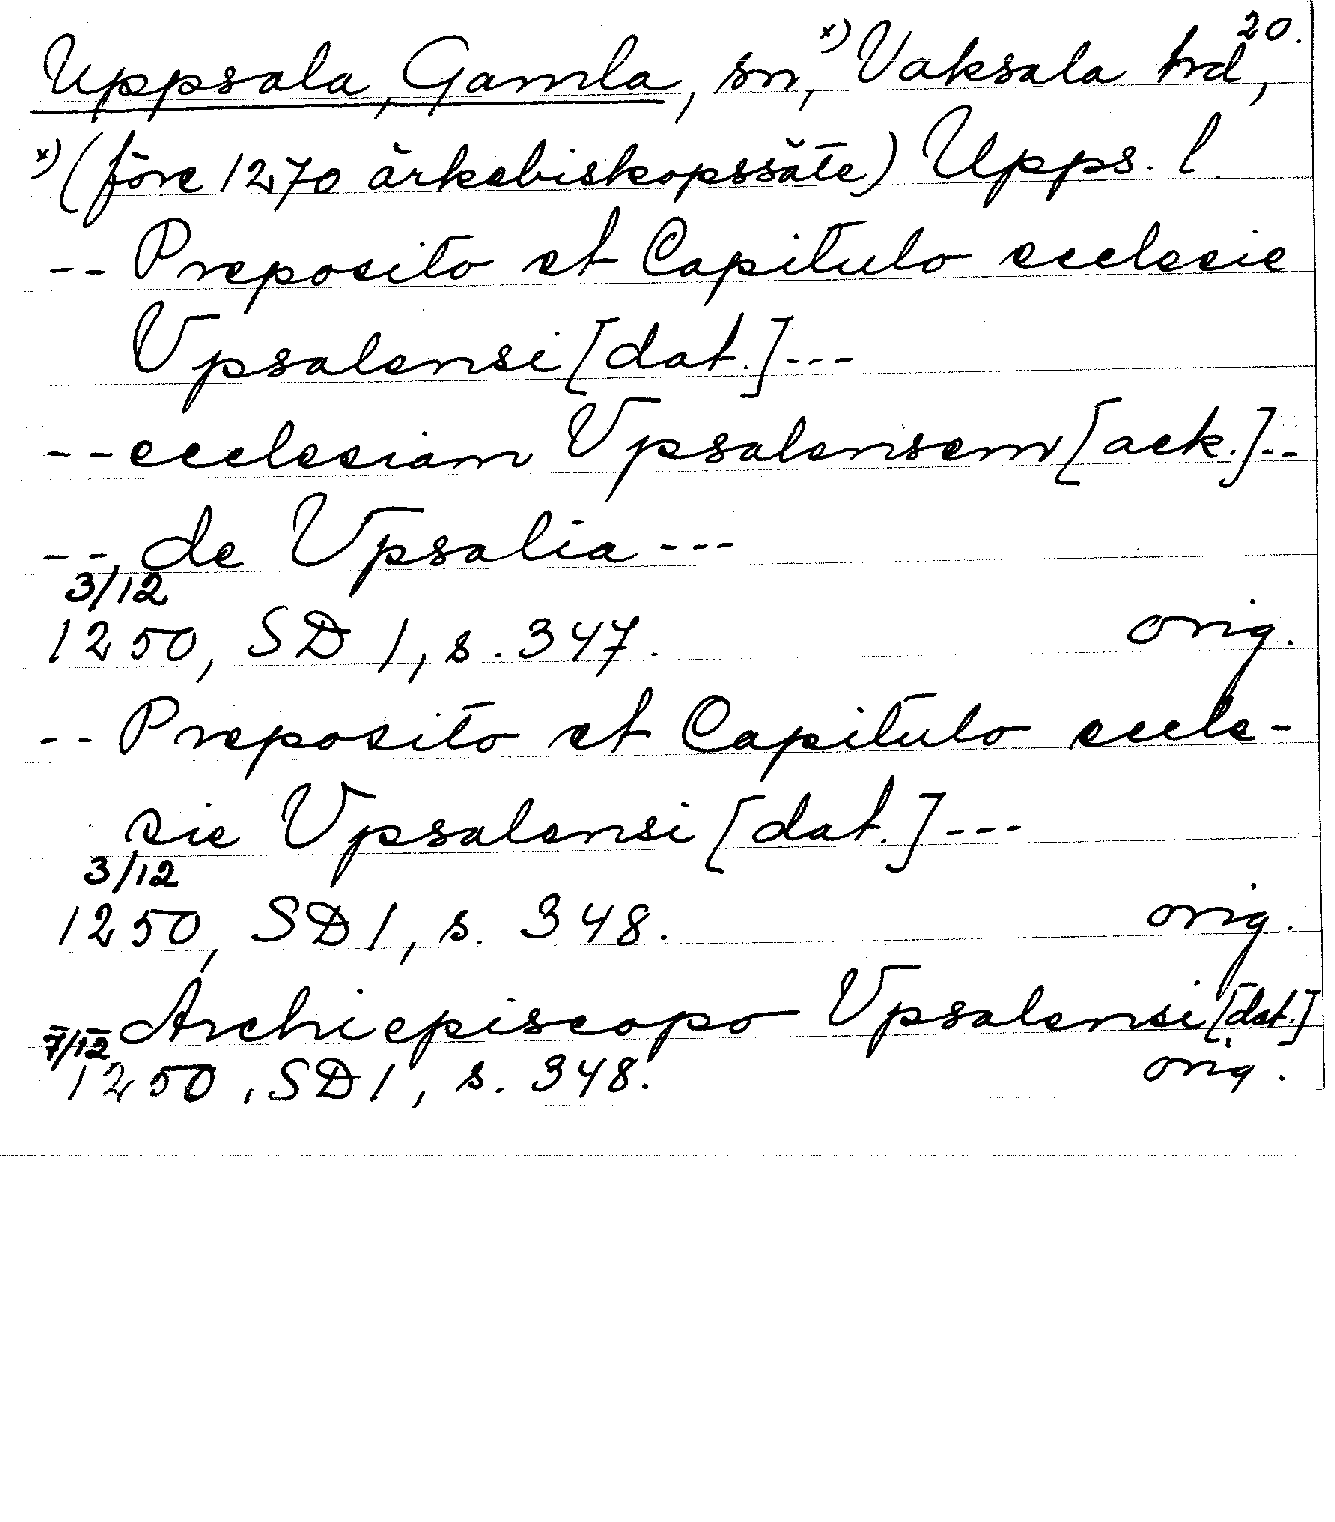 20.
Uppsala, Gamla, sn, x) Vaksala hd,
x) (före 1270 ärkebiskopssäte) Upps. l.
-- Preposito et Capitulo ecclesie
Vpsalensi [dat.]---
-- ecclesiam Vpsalensem [ack.]--
--, de Vpsalia ---
3/12
1250, SD 1, s. 347. orig.
-- Preposito et Capitulo eccle-
sie Vpsalensi [dat.]---
3/12
1250, SD 1, s. 348. orig.
Archiepiscopo Vpsalensi [dat.]
7/12
1250, SD 1, s. 348. orig.